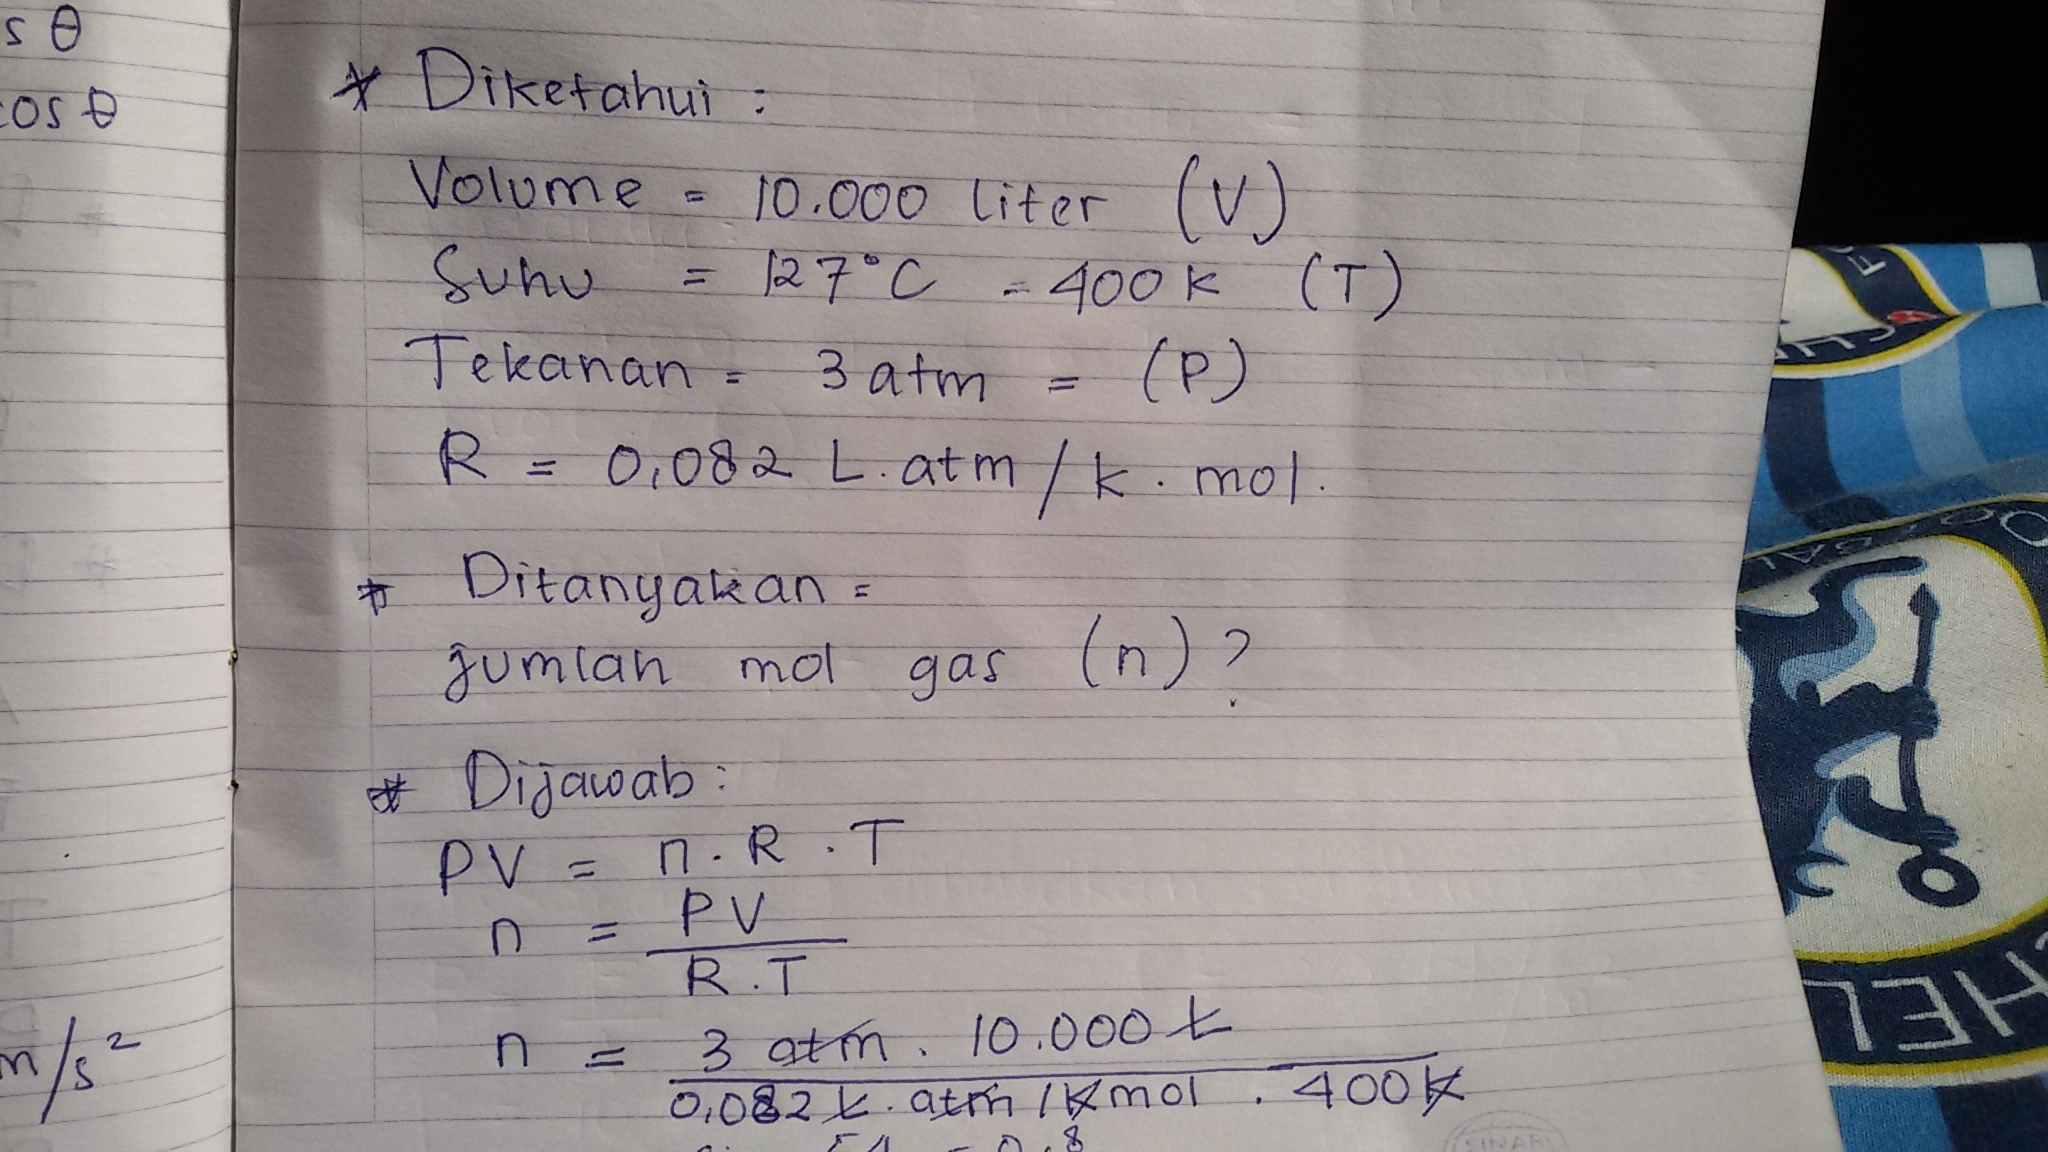 s θ
cos θ
m/s²
* Diketahui :
Volume = 10.000 liter (V)
Suhu = 127°C = 400 K (T)
Tekanan = 3 atm = (P)
R = 0,082 L.atm/k.mol.
* Ditanyakan =
jumlah mol gas (n)?
* Dijawab :
PV = n.R.T
n = PV
R.T
n = 3 atm . 10.000 L
0,082 L.atm/Kmol . 400K
HEL